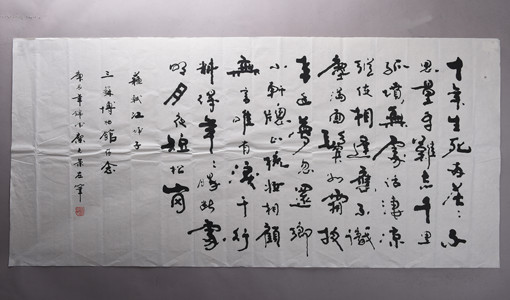 十年生死兩茫茫不
思量自難忘千里
孤墳無處話淒涼
縱使相逢應不識
塵滿面鬢如霜夜
來幽夢忽還鄉
小軒窗正梳妝相顧
無言唯有淚千行
料得年年腸斷處
明月夜短松岡
蘇軾江城子
三蘇博物館存念